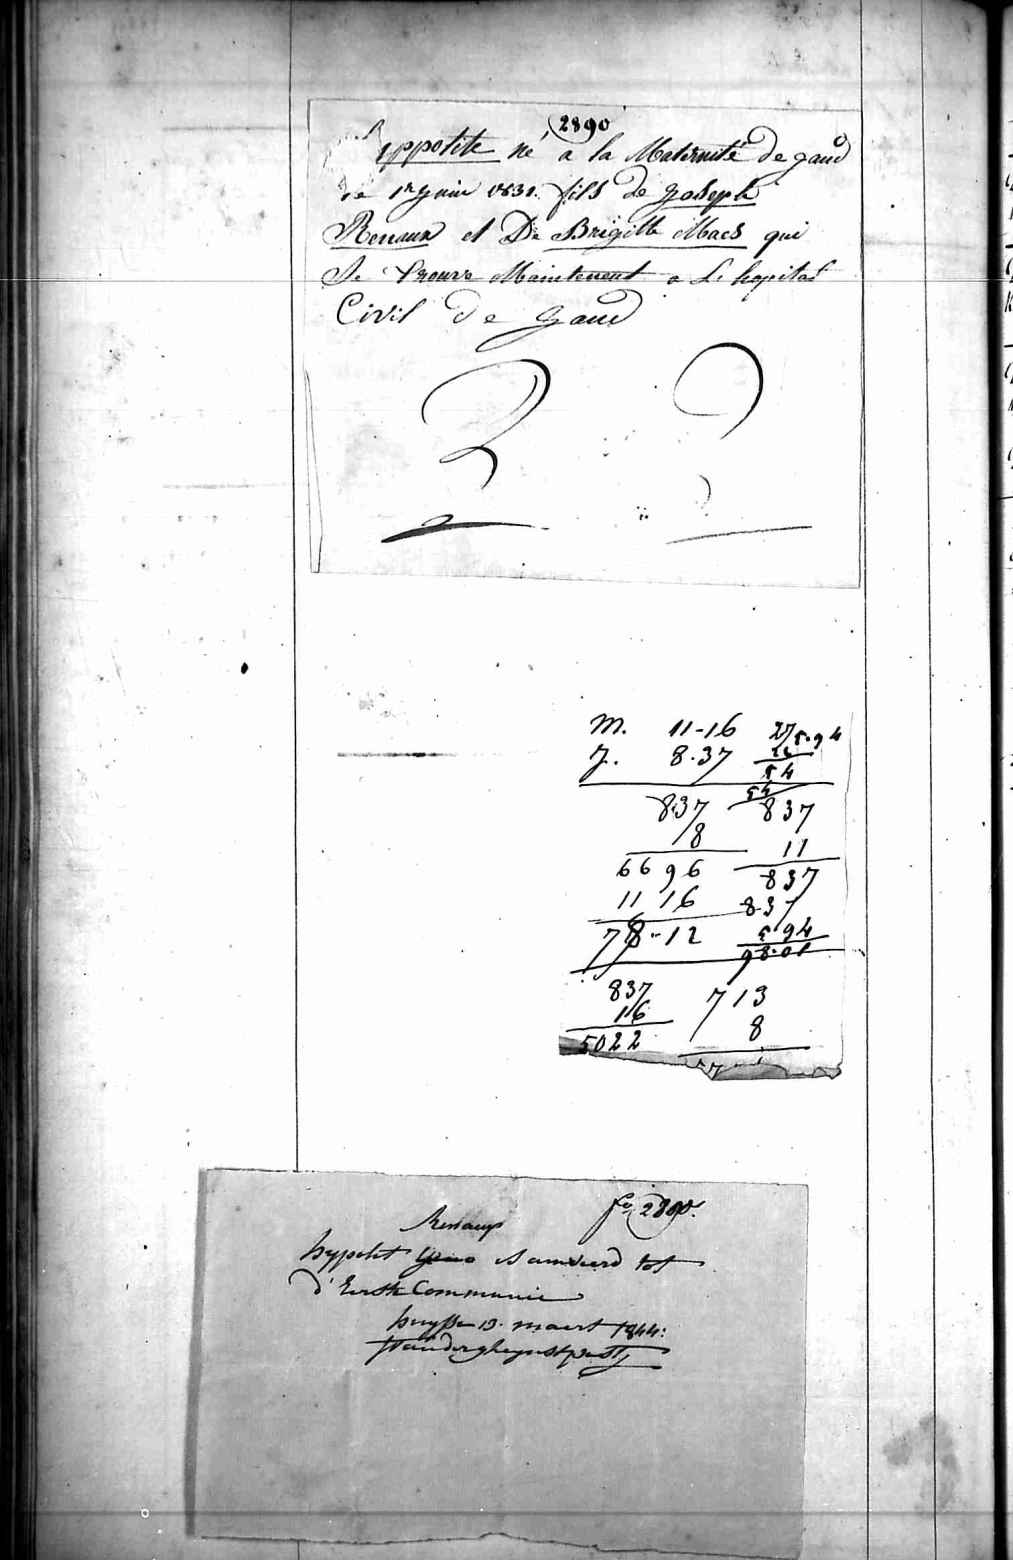 2890
ippolite né a la Maternité de gand
le 1r juin 1831. fils de Joseph
Renaux et De Brigitte Maes qui
Se trouve Maintenent a L'hopital
Civil de gand
M. 11-16
J. 8.37
27
5.94
54
54
837
8
6696
11 16
78-12
837
11
837
837
5 94
98.01
837
16
5022
713
8
fo 2890.
Renaux
hypolit is aanveerd tot
d'Eerste Communie
huysse 13. maert 1844: